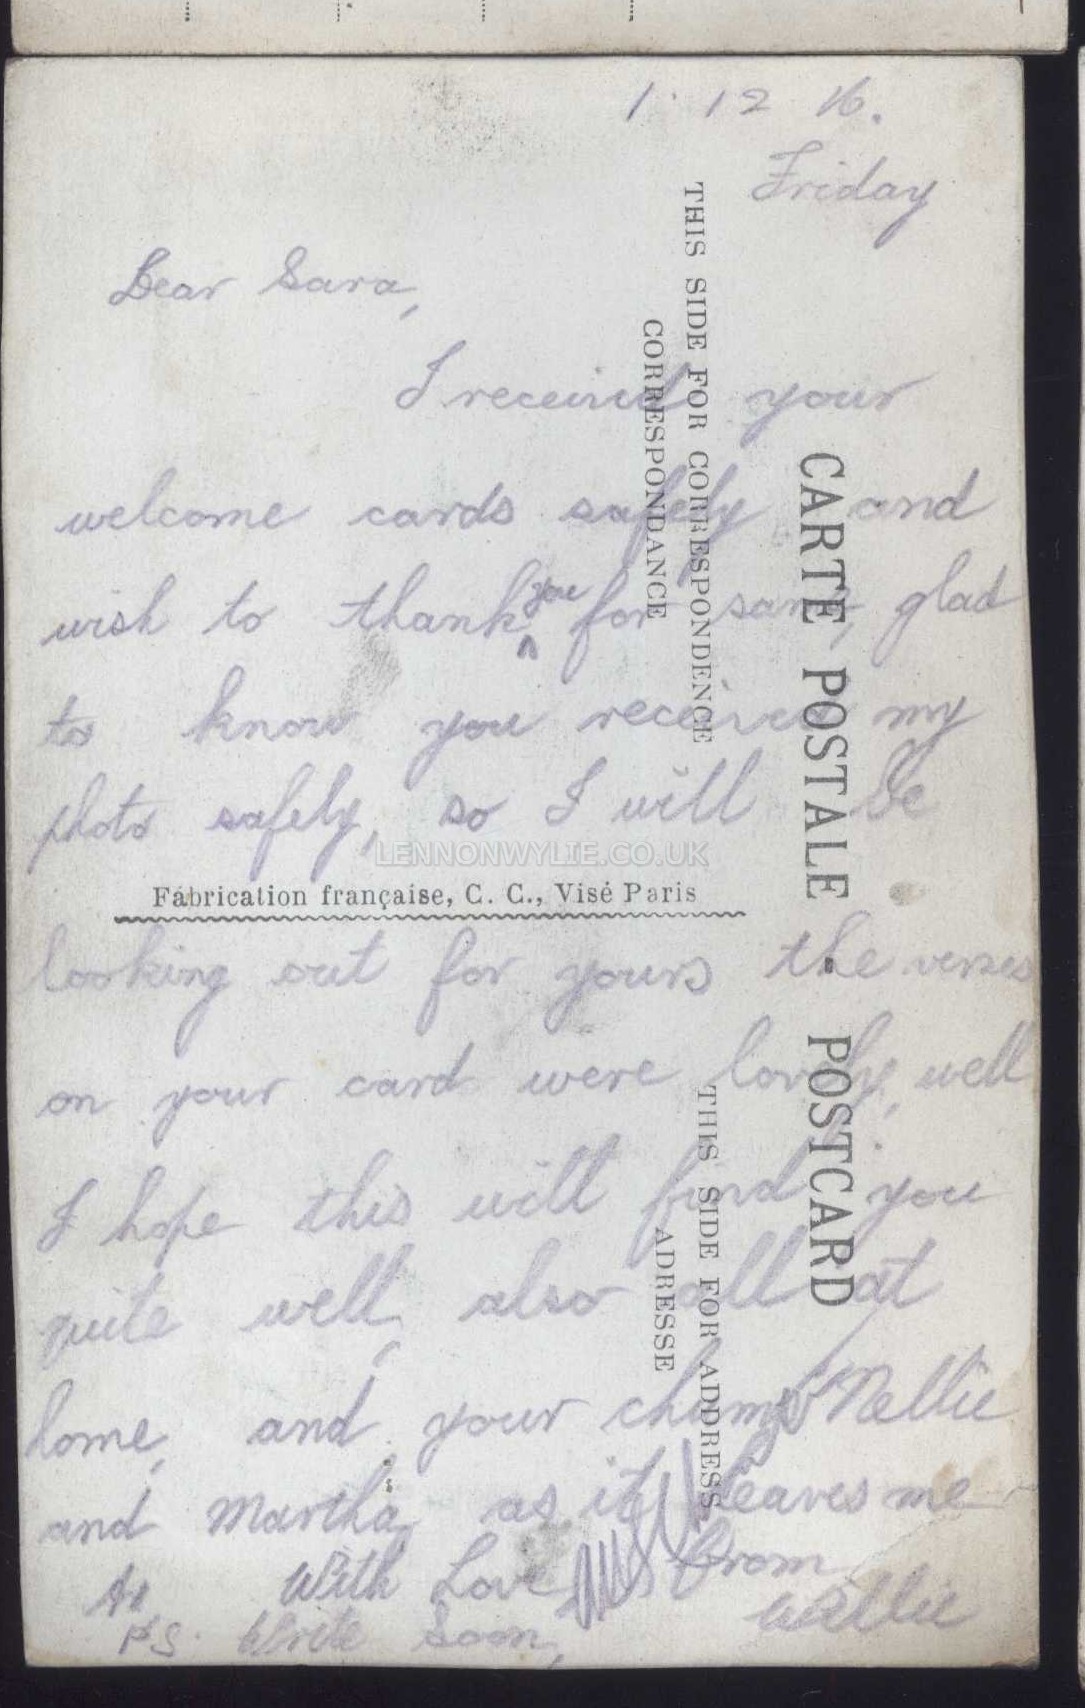 1 · 12 16.
Friday
Dear Sara,
I received your
welcome cards safely and
wish to thank you for same, glad
to know you received my
photo safely, so I will be
LENNONWYLIE.CO.UK
Fabrication française, C. C., Visé Paris
looking out for yours the verses
on your card were lovely, well
I hope this will find you
quite well, also all at
home, and your chums Nellie
and Martha, as it leaves me
A1 With Love, from
Willie
P.S. Write Soon,
THIS SIDE FOR CORRESPONDENCE
CORRESPONDANCE
CARTE POSTALE · POSTCARD
THIS SIDE FOR ADDRESS
ADRESSE